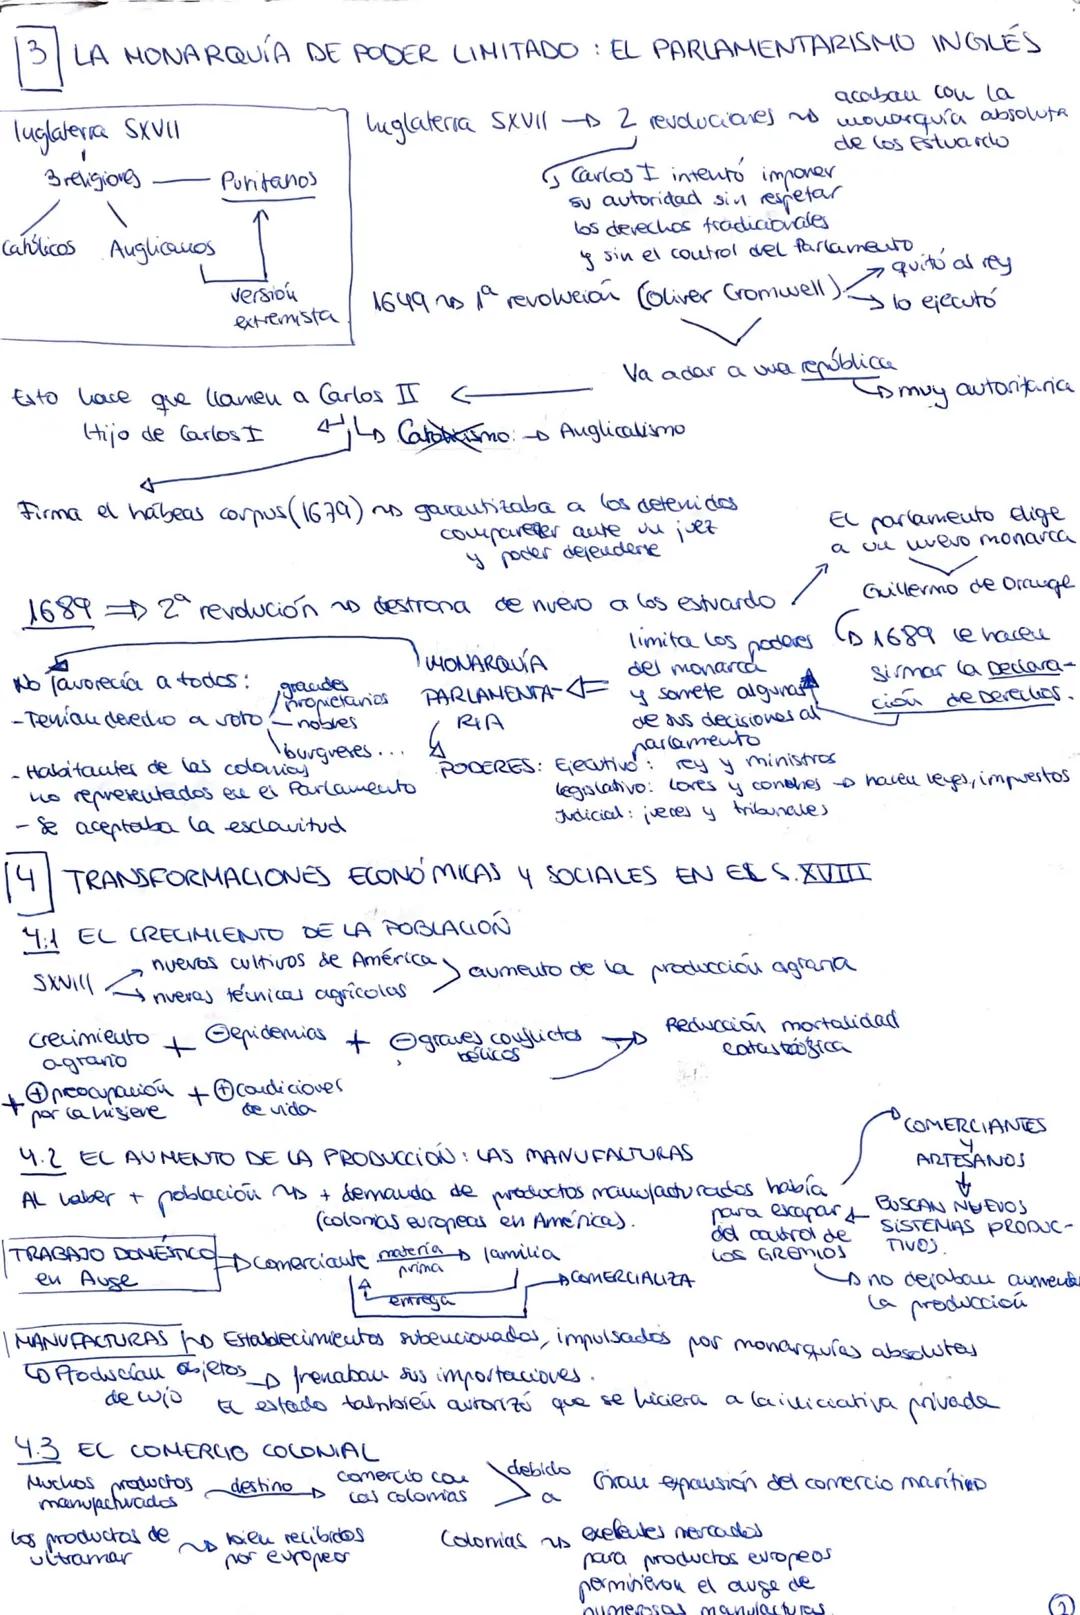 3 LA MONARQUÍA DE PODER LIMITADO: EL PARLAMENTARISMO INGLÉS
Inglaterra SXVII
3 religiones — Puritanos
Católicos Anglicanos
versión
extremista
Inglaterra SXVII → 2 revoluciones → acaban con la
monarquía absoluta
de los Estuardo
Carlos I intentó imponer
su autoridad sin respetar
los derechos tradicionales
y sin el control del Parlamento
1649 → 1ª revolución (Oliver Cromwell) → quitó al rey
→ lo ejecutó
Va a dar a una república
→ muy autoritaria
Esto hace que llamen a Carlos II ←
Hijo de Carlos I
Catolicismo: → Anglicalismo
Firma el hábeas corpus (1679) → garantizaba a los detenidos
comparecer ante un juez
y poder defenderse
1689 ⇒ 2ª revolución → destrona de nuevo a los estuardo
El parlamento elige
a un nuevo monarca
Guillermo de Orange
→ 1689 le hacen
firmar la Declara-
ción de Derechos.
limita los poderes
del monarca
y somete algunas
de sus decisiones al
parlamento
MONARQUÍA
PARLAMENTA-
RIA
No favorecía a todos:
- Tenían derecho a voto
grandes
propietarios
nobles
burgueses...
- Habitantes de las colonias
no representados en el Parlamento
- Se aceptaba la esclavitud
PODERES: Ejecutivo: rey y ministros
legislativo: Lores y comunes → hacen leyes, impuestos
Judicial: jueces y tribunales
4 TRANSFORMACIONES ECONÓMICAS Y SOCIALES EN EL S. XVIII
4.1 EL CRECIMIENTO DE LA POBLACIÓN
SXVIII → nuevos cultivos de América
→ nuevas técnicas agrícolas
aumento de la producción agraria
crecimiento
agrario
+ ⊖epidemias + ⊖graves conflictos
bélicos
→ Reducción mortalidad
catastrófica
+ ⊕preocupación
por la higiene
+ ⊕condiciones
de vida
4.2 EL AUMENTO DE LA PRODUCCIÓN: LAS MANUFACTURAS
AL haber + población → + demanda de productos manufacturados había
(colonias europeas en América).
COMERCIANTES
Y
ARTESANOS
BUSCAN NUEVOS
SISTEMAS PRODUC-
TIVOS.
para escapar
del control de
LOS GREMIOS
→ no dejaban aumentar
la producción
TRABAJO DOMÉSTICO
en Auge
→ Comerciante materia
prima → familia
entrega
→ COMERCIALIZA
MANUFACTURAS → Establecimientos subencionados, impulsados por monarquías absolutas
→ Producían objetos
de lujo
→ frenaban sus importaciones.
El estado también autorizó que se hiciera a la iniciativa privada
4.3 EL COMERCIO COLONIAL
Muchos productos
manufacturados
destino → comercio con
las colonias
debido
a
Gran expansión del comercio marítimo
los productos de
ultramar
→ bien recibidos
por europeos
Colonias → exelentes mercados
para productos europeos
permitieron el auge de
numerosas manufacturas
2